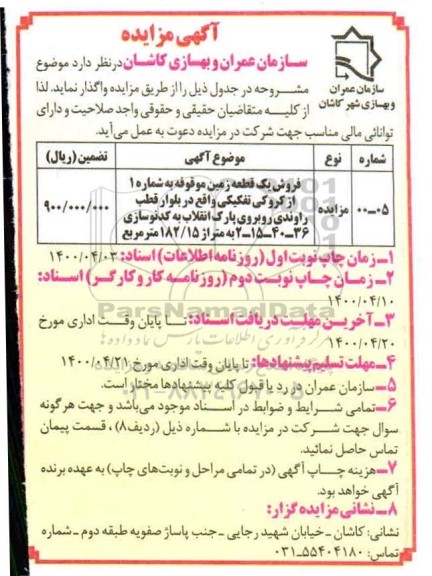 آگهی مزایده
سازمان عمران و بهسازی کاشان در نظر دارد موضوع
مشروحه در جدول ذیل را از طریق مزایده واگذار نماید. لذا
از کلیه متقاضیان حقیقی و حقوقی واجد صلاحیت و دارای
توانائی مالی مناسب جهت شرکت در مزایده دعوت به عمل می‌آید.
سازمان عمران
و بهسازی شهر کاشان
شماره نوع موضوع آگهی تضمین (ریال)
۰۵-۰۰ مزایده فروش یک قطعه زمین موقوفه به شماره ۱ ۹۰۰/۰۰۰/۰۰۰
از کروکی تفکیکی واقع در بلوار قطب
راوندی روبروی پارک انقلاب به کدنوسازی
۳۶-۴۰-۱۵-۲ به متراژ ۱۸۲/۱۵ مترمربع
۱-زمان چاپ نوبت اول (روزنامه اطلاعات) اسناد: ۱۴۰۰/۰۴/۰۳
۲-زمان چاپ نوبت دوم (روزنامه کار و کارگر) اسناد:
۱۴۰۰/۰۴/۱۰
۳-آخرین مهلت دریافت اسناد: تا پایان وقت اداری مورخ
۱۴۰۰/۰۴/۲۰
۴-مهلت تسلیم پیشنهادها: تا پایان وقت اداری مورخ ۱۴۰۰/۰۴/۲۱
۵-سازمان عمران در رد یا قبول کلیه پیشنهادها مختار است.
۶-تمامی شرایط و ضوابط در اسناد موجود می‌باشد و جهت هرگونه
سوال جهت شرکت در مزایده با شماره ذیل (ردیف۸) ، قسمت پیمان
تماس حاصل نمائید.
۷-هزینه چاپ آگهی (در تمامی مراحل و نوبت‌های چاپ) به عهده برنده
آگهی خواهد بود.
۸-نشانی مزایده گزار:
نشانی: کاشان -خیابان شهید رجایی -جنب پاساژ صفویه طبقه دوم -شماره
تماس: ۵۵۴۰۴۱۸۰-۰۳۱
ParsNamadData